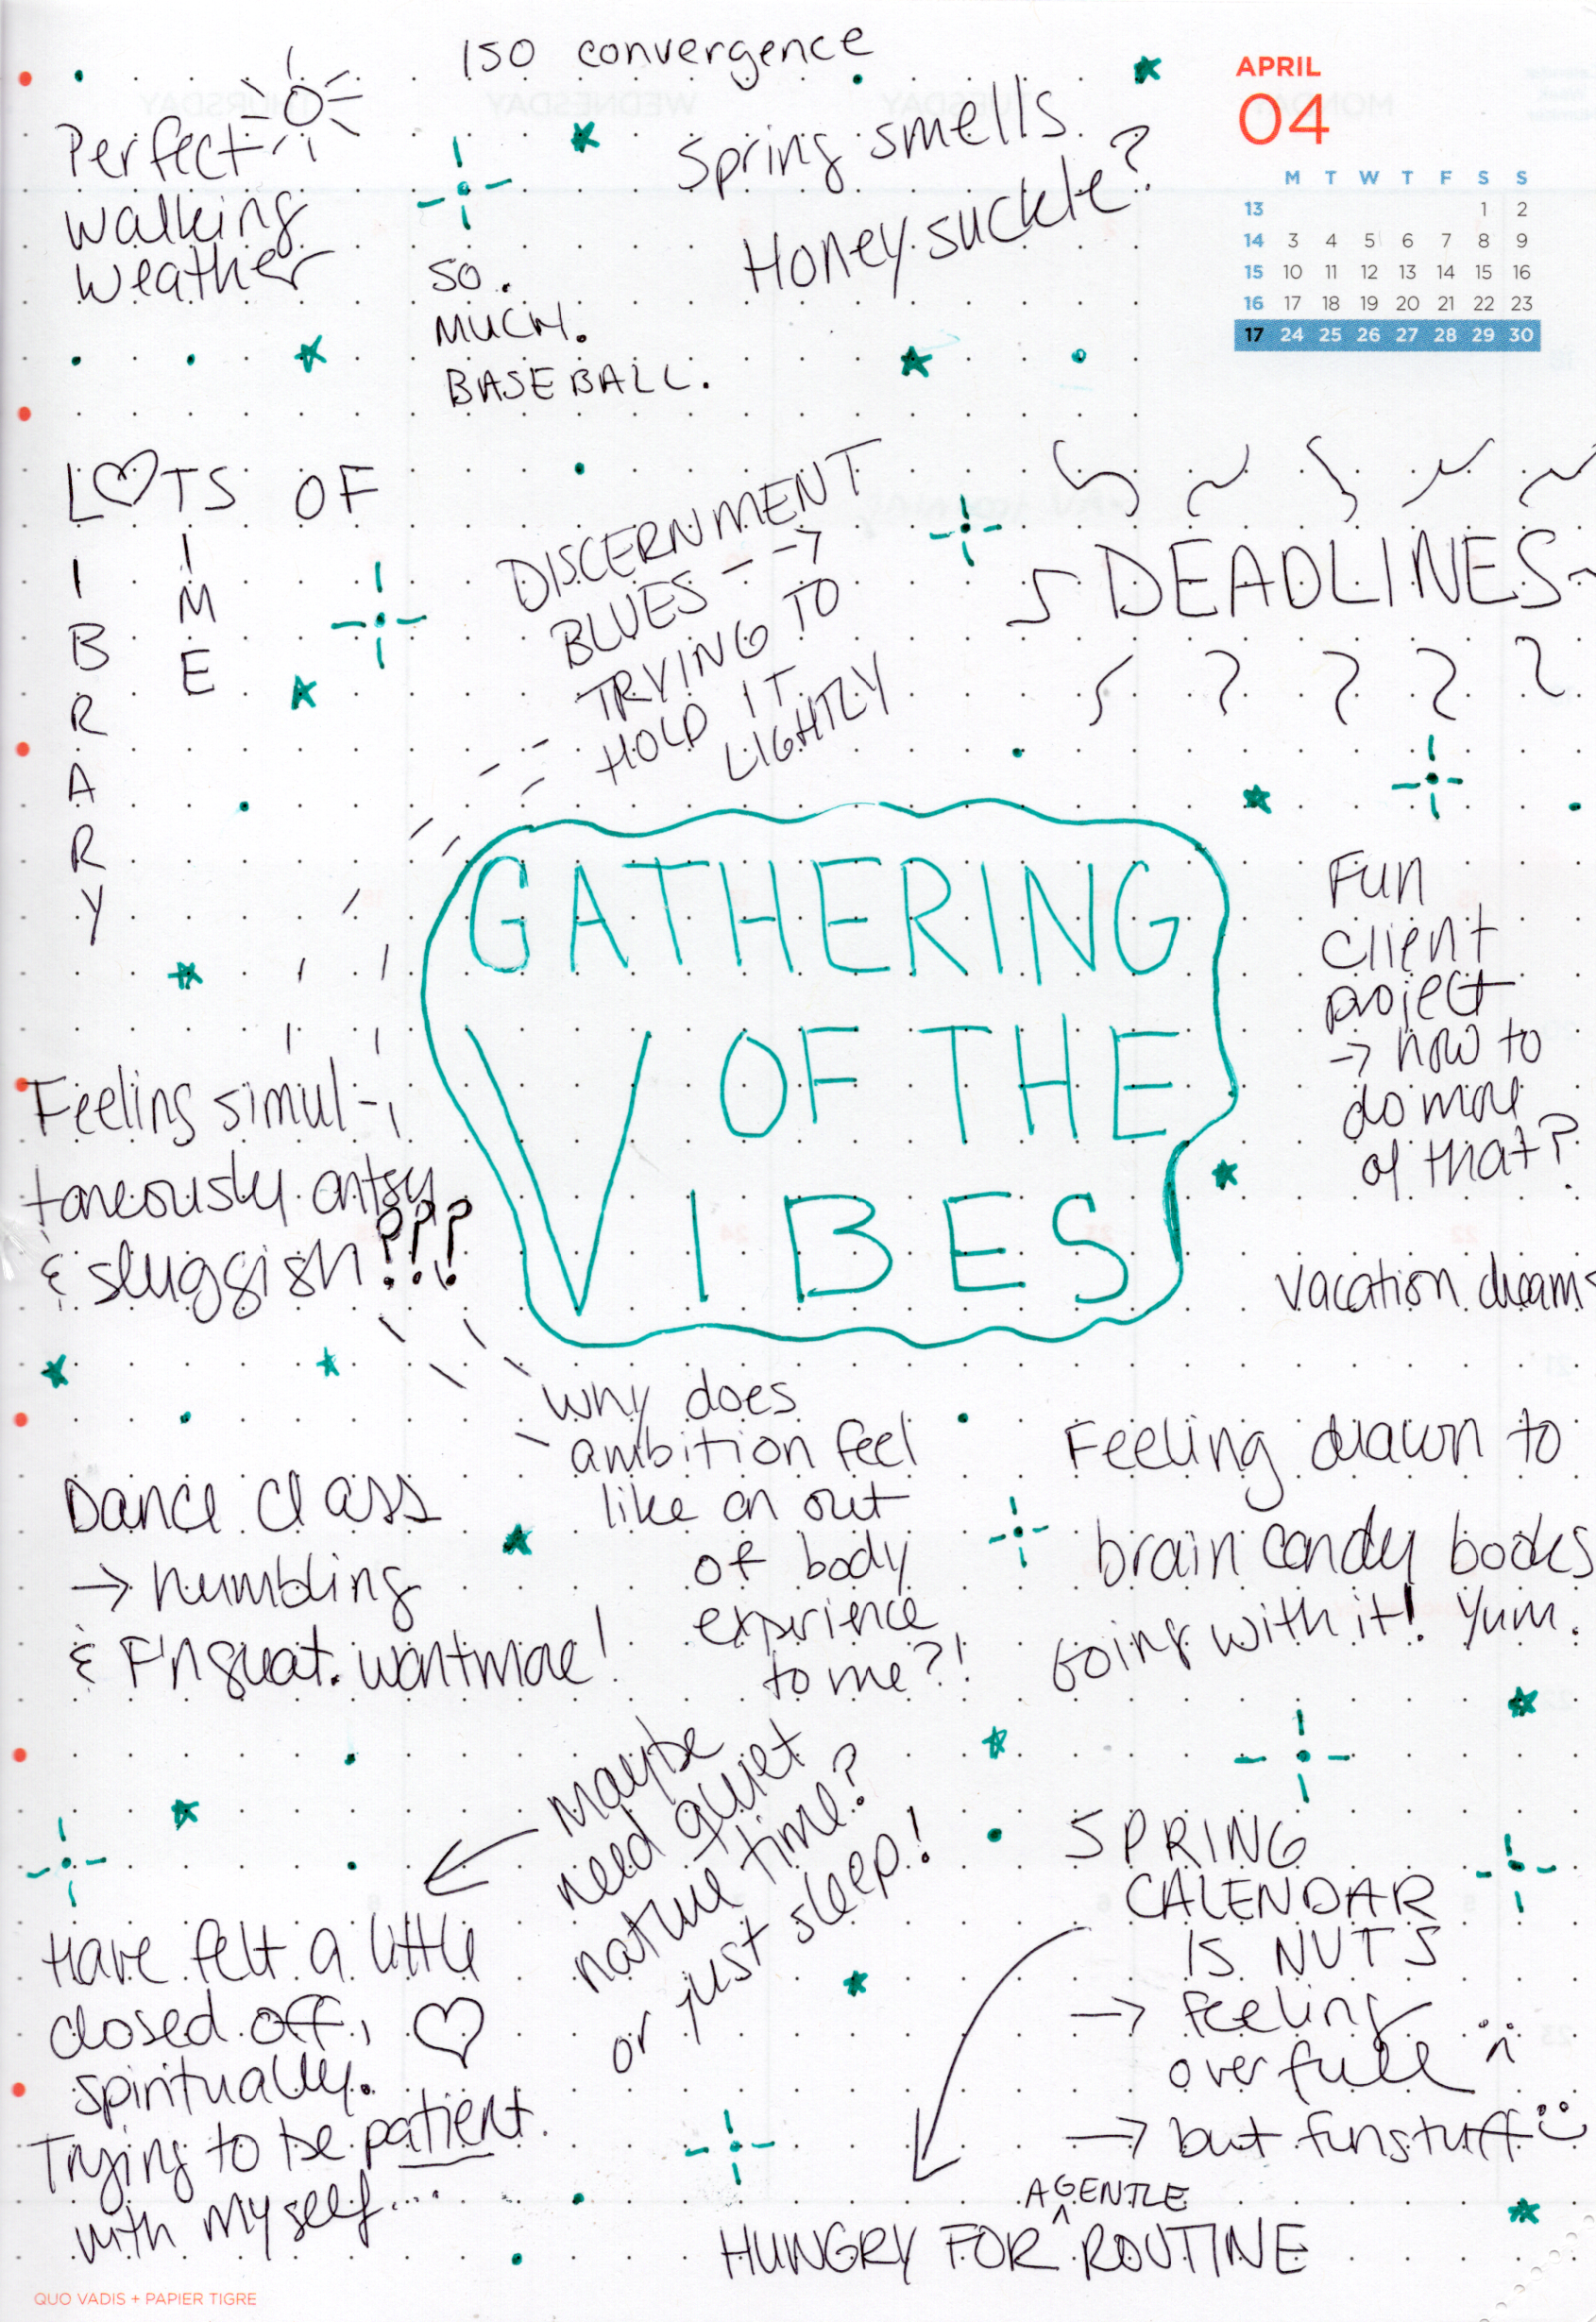 ISO convergence
Perfect
walking
weather
Spring smells.
Honeysuckle?
SO.
MUCH.
BASEBALL.
APRIL
04
M T W T F S S
13 1 2
14 3 4 5 6 7 8 9
15 10 11 12 13 14 15 16
16 17 18 19 20 21 22 23
17 24 25 26 27 28 29 30
LOTS OF
IBRARY
IME
DISCERNMENT
BLUES -->
TRYING TO
HOLD IT
LIGHTLY
DEADLINES
GATHERING
OF THE
VIBES
Fun
client
project
→ how to
do more
of that?
Feeling simul-
taneously antsy
& sluggish???
vacation dreams
Why does
ambition feel
like an out
of body
experience
to me?!
Feeling drawn to
brain candy books
Going with it! Yum.
Dance class
→ humbling
& F'n great. want more!
Maybe
need quiet
nature time?
or just sleep!
SPRING
CALENDAR
IS NUTS
→ feeling
overfull :(
→ but fun stuff :)
Have felt a little
closed off,
spiritually.
Trying to be patient
with myself...
A GENTLE
HUNGRY FOR ^ ROUTINE
QUO VADIS + PAPIER TIGRE